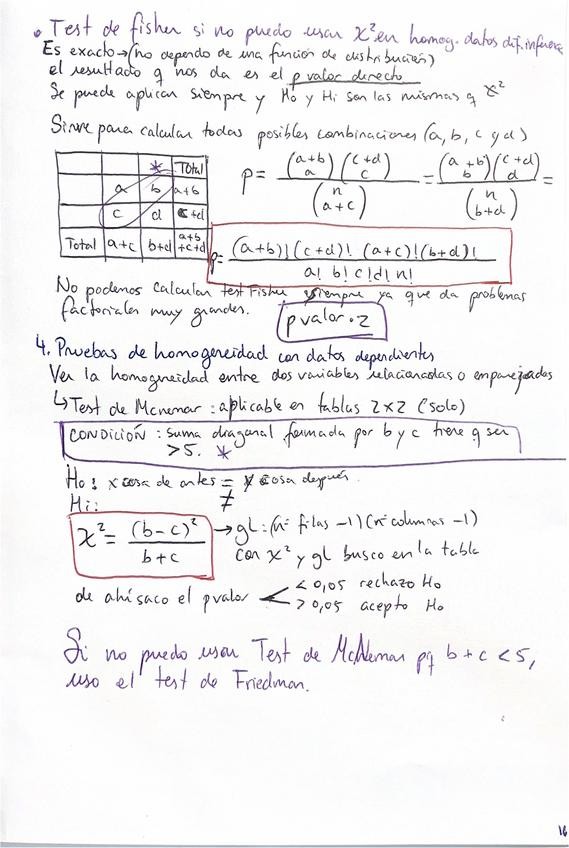 • Test de fisher si no puedo usar X² en homog. datos dif. inferencia
Es exacto → (no depende de una función de distribución)
el resultado q nos da es el p valor directo
Se puede aplicar siempre y Ho y Hi son las mismas q X²
Sirve para calcular todas posibles combinaciones (a, b, c y d)
* Total
a b a+b
c d c+d
Total a+c b+d a+b+c+d
p = (a+b a) (c+d c) / (n a+c) = (a+b b) (c+d d) / (n b+d) =
p = (a+b)! (c+d)! (a+c)! (b+d)! / a! b! c! d! n!
No podemos calcular test Fisher siempre ya que da problemas
factoriales muy grandes.
p valor · 2
4. Pruebas de homogeneidad con datos dependientes
Ver la homogeneidad entre dos variables relacionadas o emparejadas
↳ Test de Mcnemar : aplicable en tablas 2x2 (solo)
CONDICIÓN : suma diagonal formada por b y c tiene q ser
>5. *
Ho : x cosa de antes = x cosa después.
Hi : ≠
X² = (b-c)² / b+c → gL : (nº filas -1) (nº columnas -1)
con X² y gl busco en la tabla
de ahí saco el p valor < 0,05 rechazo Ho
> 0,05 acepto Ho
Si no puedo usar Test de McNemar pq b + c < 5,
uso el test de Friedman.
16